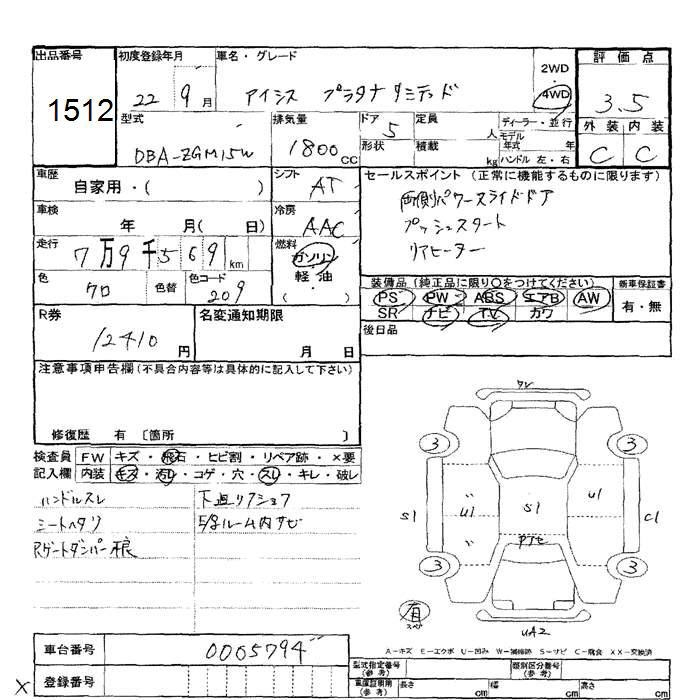 出品番号
1512
初度登録年月
22 9月
車名・グレード
アイシス プラタナ リミテッド
2WD
4WD
評価点
3.5
外装 内装
C C
型式
DBA-ZGM15W
排気量
1800cc
ドア
5
形状
定員
人
積載
kg
ディーラー・並行
モデル年式 年
ハンドル 左・右
車歴
自家用・( )
シフト
AT
車検
年 月( 日)
冷房
AAC
走行
7万9千569km
燃料
ガソリン
軽油
( )
色
クロ
色替
色コード
209
セールスポイント (正常に機能するものに限ります)
両側パワースライドドア
プッシュスタート
リアヒーター
装備品 (純正品に限り○をつけてください)
PS PW ABS エアB AW
SR ナビ TV カワ
新車保証書
有・無
後日品
R券
12410円
名変通知期限
月 日
注意事項申告欄 (不具合内容等は具体的に記入して下さい)
修復歴 有 〔箇所 〕
検査員記入欄
FW キズ・飛石・ヒビ割・リペア跡・×要
内装 キズ・汚レ・コゲ・穴・スレ・キレ・破レ
ハンドルスレ
シートヘタリ
Rゲートダンパー不良
下廻リ
ルーム内サビ
ワレ
3 3
S1 U1 S1 U1 C1
3 3
有
スペア
UA2
A-キズ E-エクボ U-凹み W-補修跡 S-サビ C-腐食 XX-交換済
車台番号
0005794
登録番号
X
型式指定番号(参考)
類別区分番号(参考)
(参考)
長さ cm
幅 cm
高さ cm